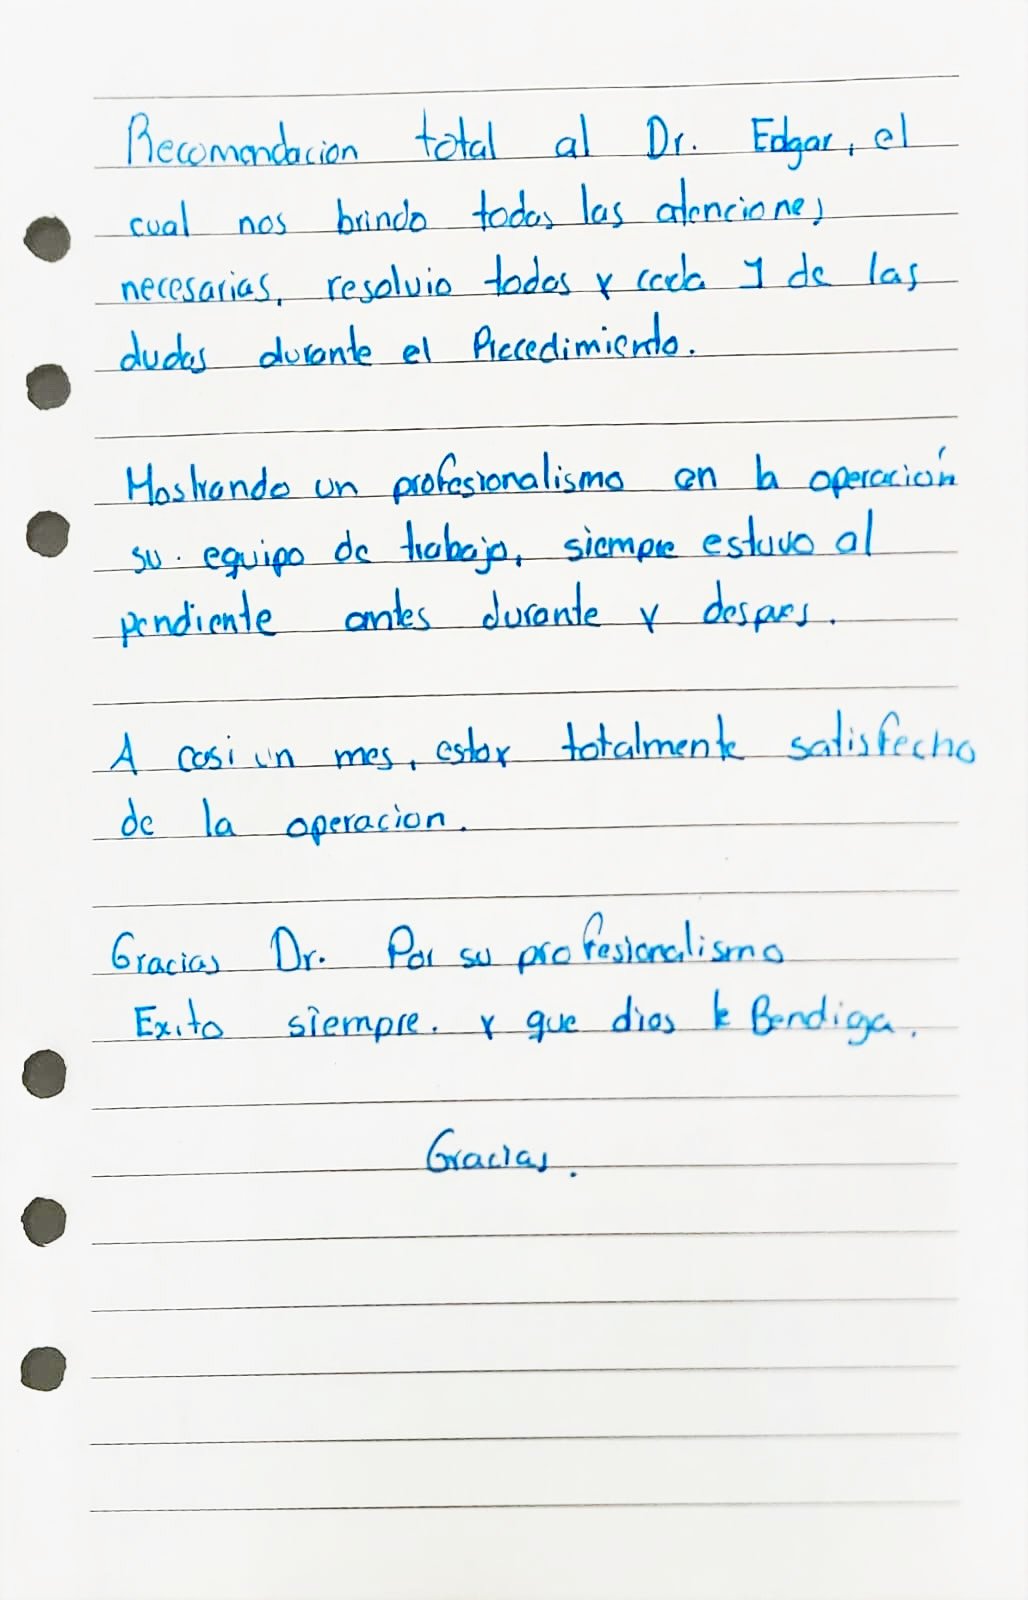 Recomendacion total al Dr. Edgar, el
cual nos brindo todas las atenciones
necesarias, resolvio todas y cada 1 de las
dudas durante el Procedimiento.
Mostrando un profesionalismo en la operación
su. equipo de trabajo, siempre estuvo al
pendiente antes durante y despues.
A casi un mes, estoy totalmente satisfecho
de la operacion.
Gracias Dr. Por su profesionalismo
Exito siempre. y que dios le Bendiga.
Gracias.